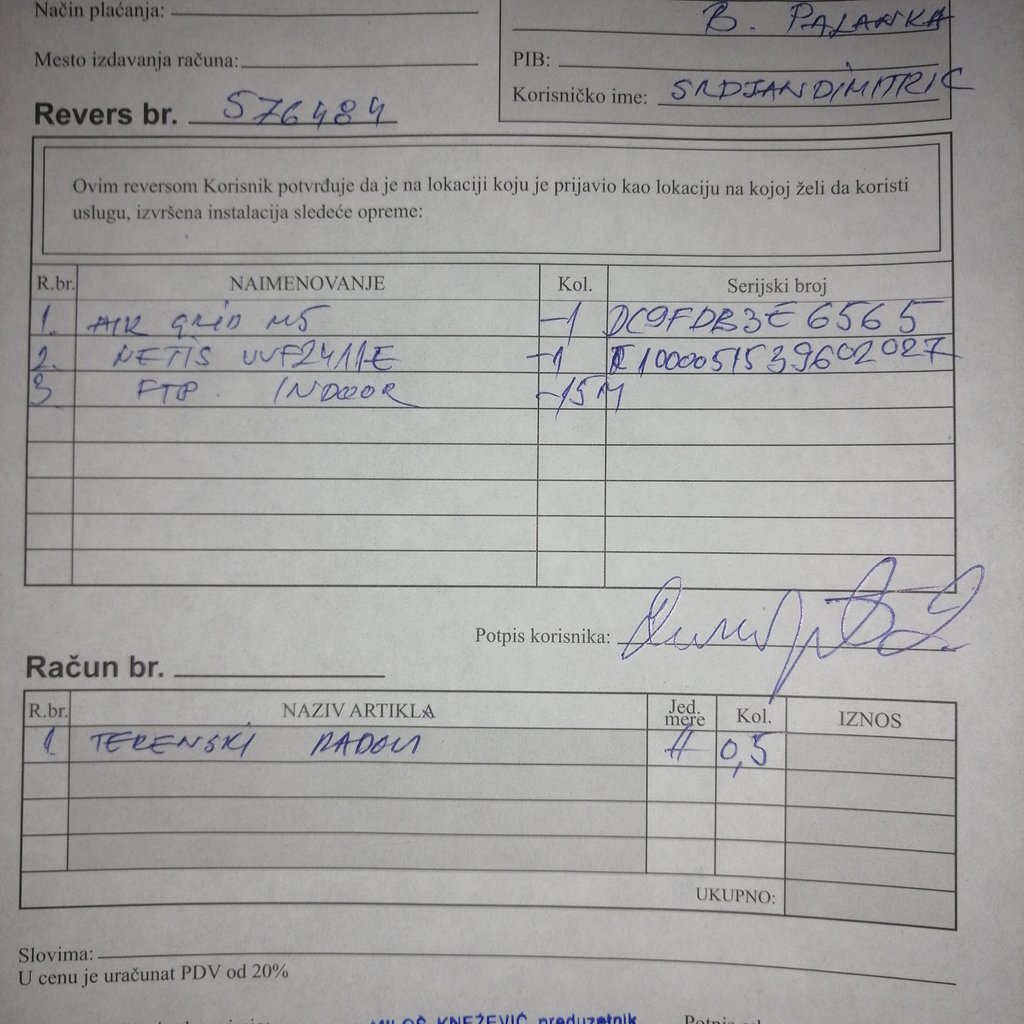 Način plaćanja:
B. PALANKA
Mesto izdavanja računa:
PIB:
Korisničko ime: SRDJANDIMITRIC
Revers br. 576484
Ovim reversom Korisnik potvrđuje da je na lokaciji koju je prijavio kao lokaciju na kojoj želi da koristi
uslugu, izvršena instalacija sledeće opreme:
R.br. NAIMENOVANJE Kol. Serijski broj
1. AIR GRID M5 -1 DC9FDB3E6565
2. NETIS WF2411E -1 E1000051539602027
3 FTP. INDOOR -15M
Potpis korisnika:
Račun br.
R.br. NAZIV ARTIKLA Jed. mere Kol. IZNOS
1 TERENSKI RADOVI H 0,5
UKUPNO:
Slovima:
U cenu je uračunat PDV od 20%
MILOŠ KNEŽEVIĆ preduzetnik